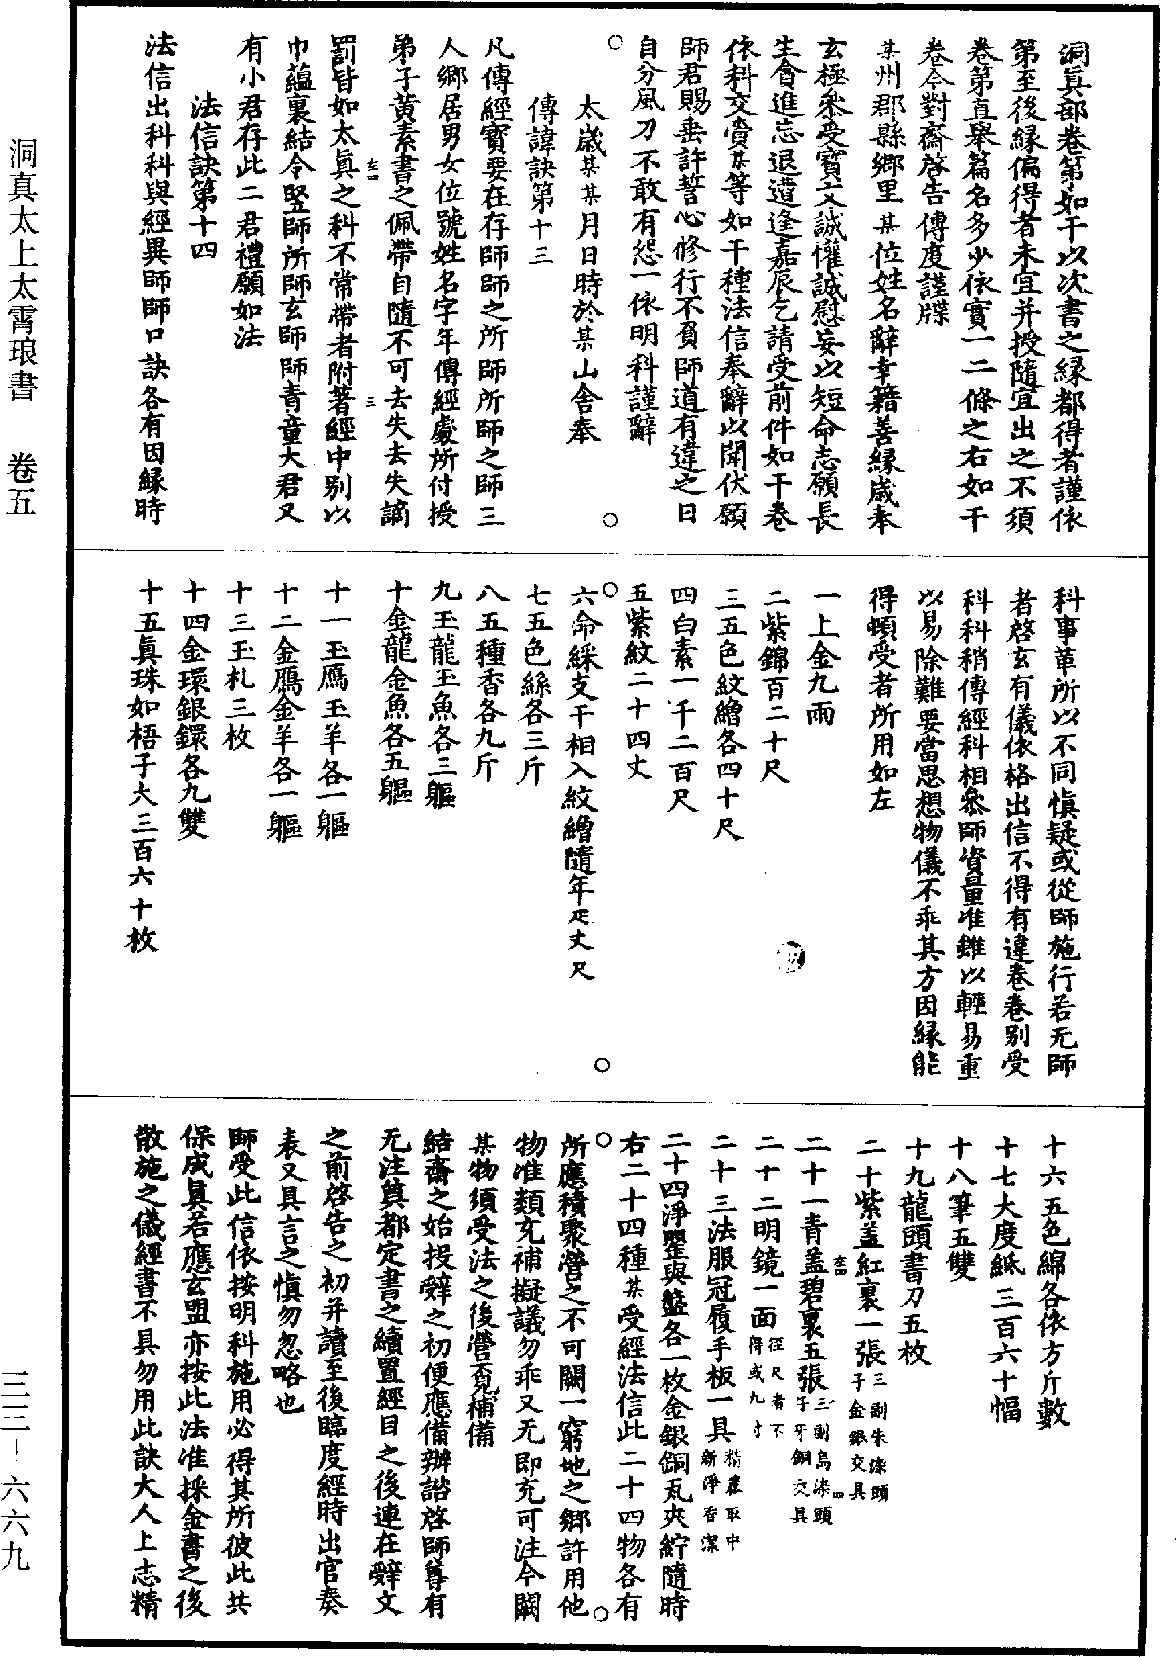 洞真太上太霄琅書　卷五
三三－六六九
洞真部卷第如干以次書之緣都得者謹依
第至後緣偏得者未宜并授隨宜出之不須
卷第直舉篇名多少依實一二條之右如干
卷今對齋啓告傳度謹牒
某州郡縣鄉里某位姓名辭幸藉善緣歲奉
玄極衆受寶文誠懽誠慰妄以短命志願長
生貪進忘退遭逢嘉辰乞請受前件如干卷
依科交賫某等如干種法信奉辭以聞伏願
師君賜垂許誓心修行不負師道有違之日
自分風刀不敢有怨一依明科謹辭
太歲某某月日時於某山舍奉
傳諱訣第十三
凡傳經寶要在存師師之所師所師之師三
人鄉居男女位號姓名字年傳經處所付授
弟子黃素書之佩帶自隨不可去失去失謫
罰皆如太真之科不常帶者附著經中別以
巾蘊裹結令堅師所師玄師師青童大君又
有小君存此二君禮願如法
法信訣第十四
法信出科科與經異師師口訣各有因緣時
科事革所以不同慎疑或從師施行若无師
者啓玄有儀依格出信不得有違卷卷別受
科科稍傳經科相參師資量准雖以輕易重
以易除難要當思想物儀不乖其方因緣能
得頓受者所用如左
一上金九兩
二紫錦百二十尺
三五色紋繒各四十尺
四白素一千二百尺
五紫紋二十四丈
六命綵支干相入紋繒隨年疋丈尺
七五色絲各三斤
八五種香各九斤
九玉龍玉魚各三軀
十金龍金魚各五軀
十一玉鴈玉羊各一軀
十二金鴈金羊各一軀
十三玉札三枚
十四金環銀鐶各九雙
十五真珠如梧子大三百六十枚
十六五色綿各依方斤數
十七大度紙三百六十幅
十八筆五雙
十九龍頭書刀五枚
二十紫蓋紅裏一張三副朱漆頭子金銀交具
二十一青蓋碧裏五張三副烏漆頭子牙銅交具
二十二明鏡一面徑尺者不得或九寸
二十三法服冠履手板一具精麁取中新淨香潔
二十四淨罌與籃各一枚金銀銅瓦夾紵隨時
右二十四種某受經法信此二十四物各有
所應積聚營之不可闕一窮地之鄉許用他
物准類充補擬議勿乖又无即充可注今闕
某物須受法之後營覓補備
結齋之始投辭之初便應備辦諮啓師尊有
无注奠都定書之續置經目之後連在辭文
之前啓告之初并讀至後臨度經時出官奏
表又具言之慎勿忽略也
師受此信依按明科施用必得其所彼此共
保成真若應玄盟亦按此法准採金書之後
散施之儀經書不具勿用此訣大人上志精